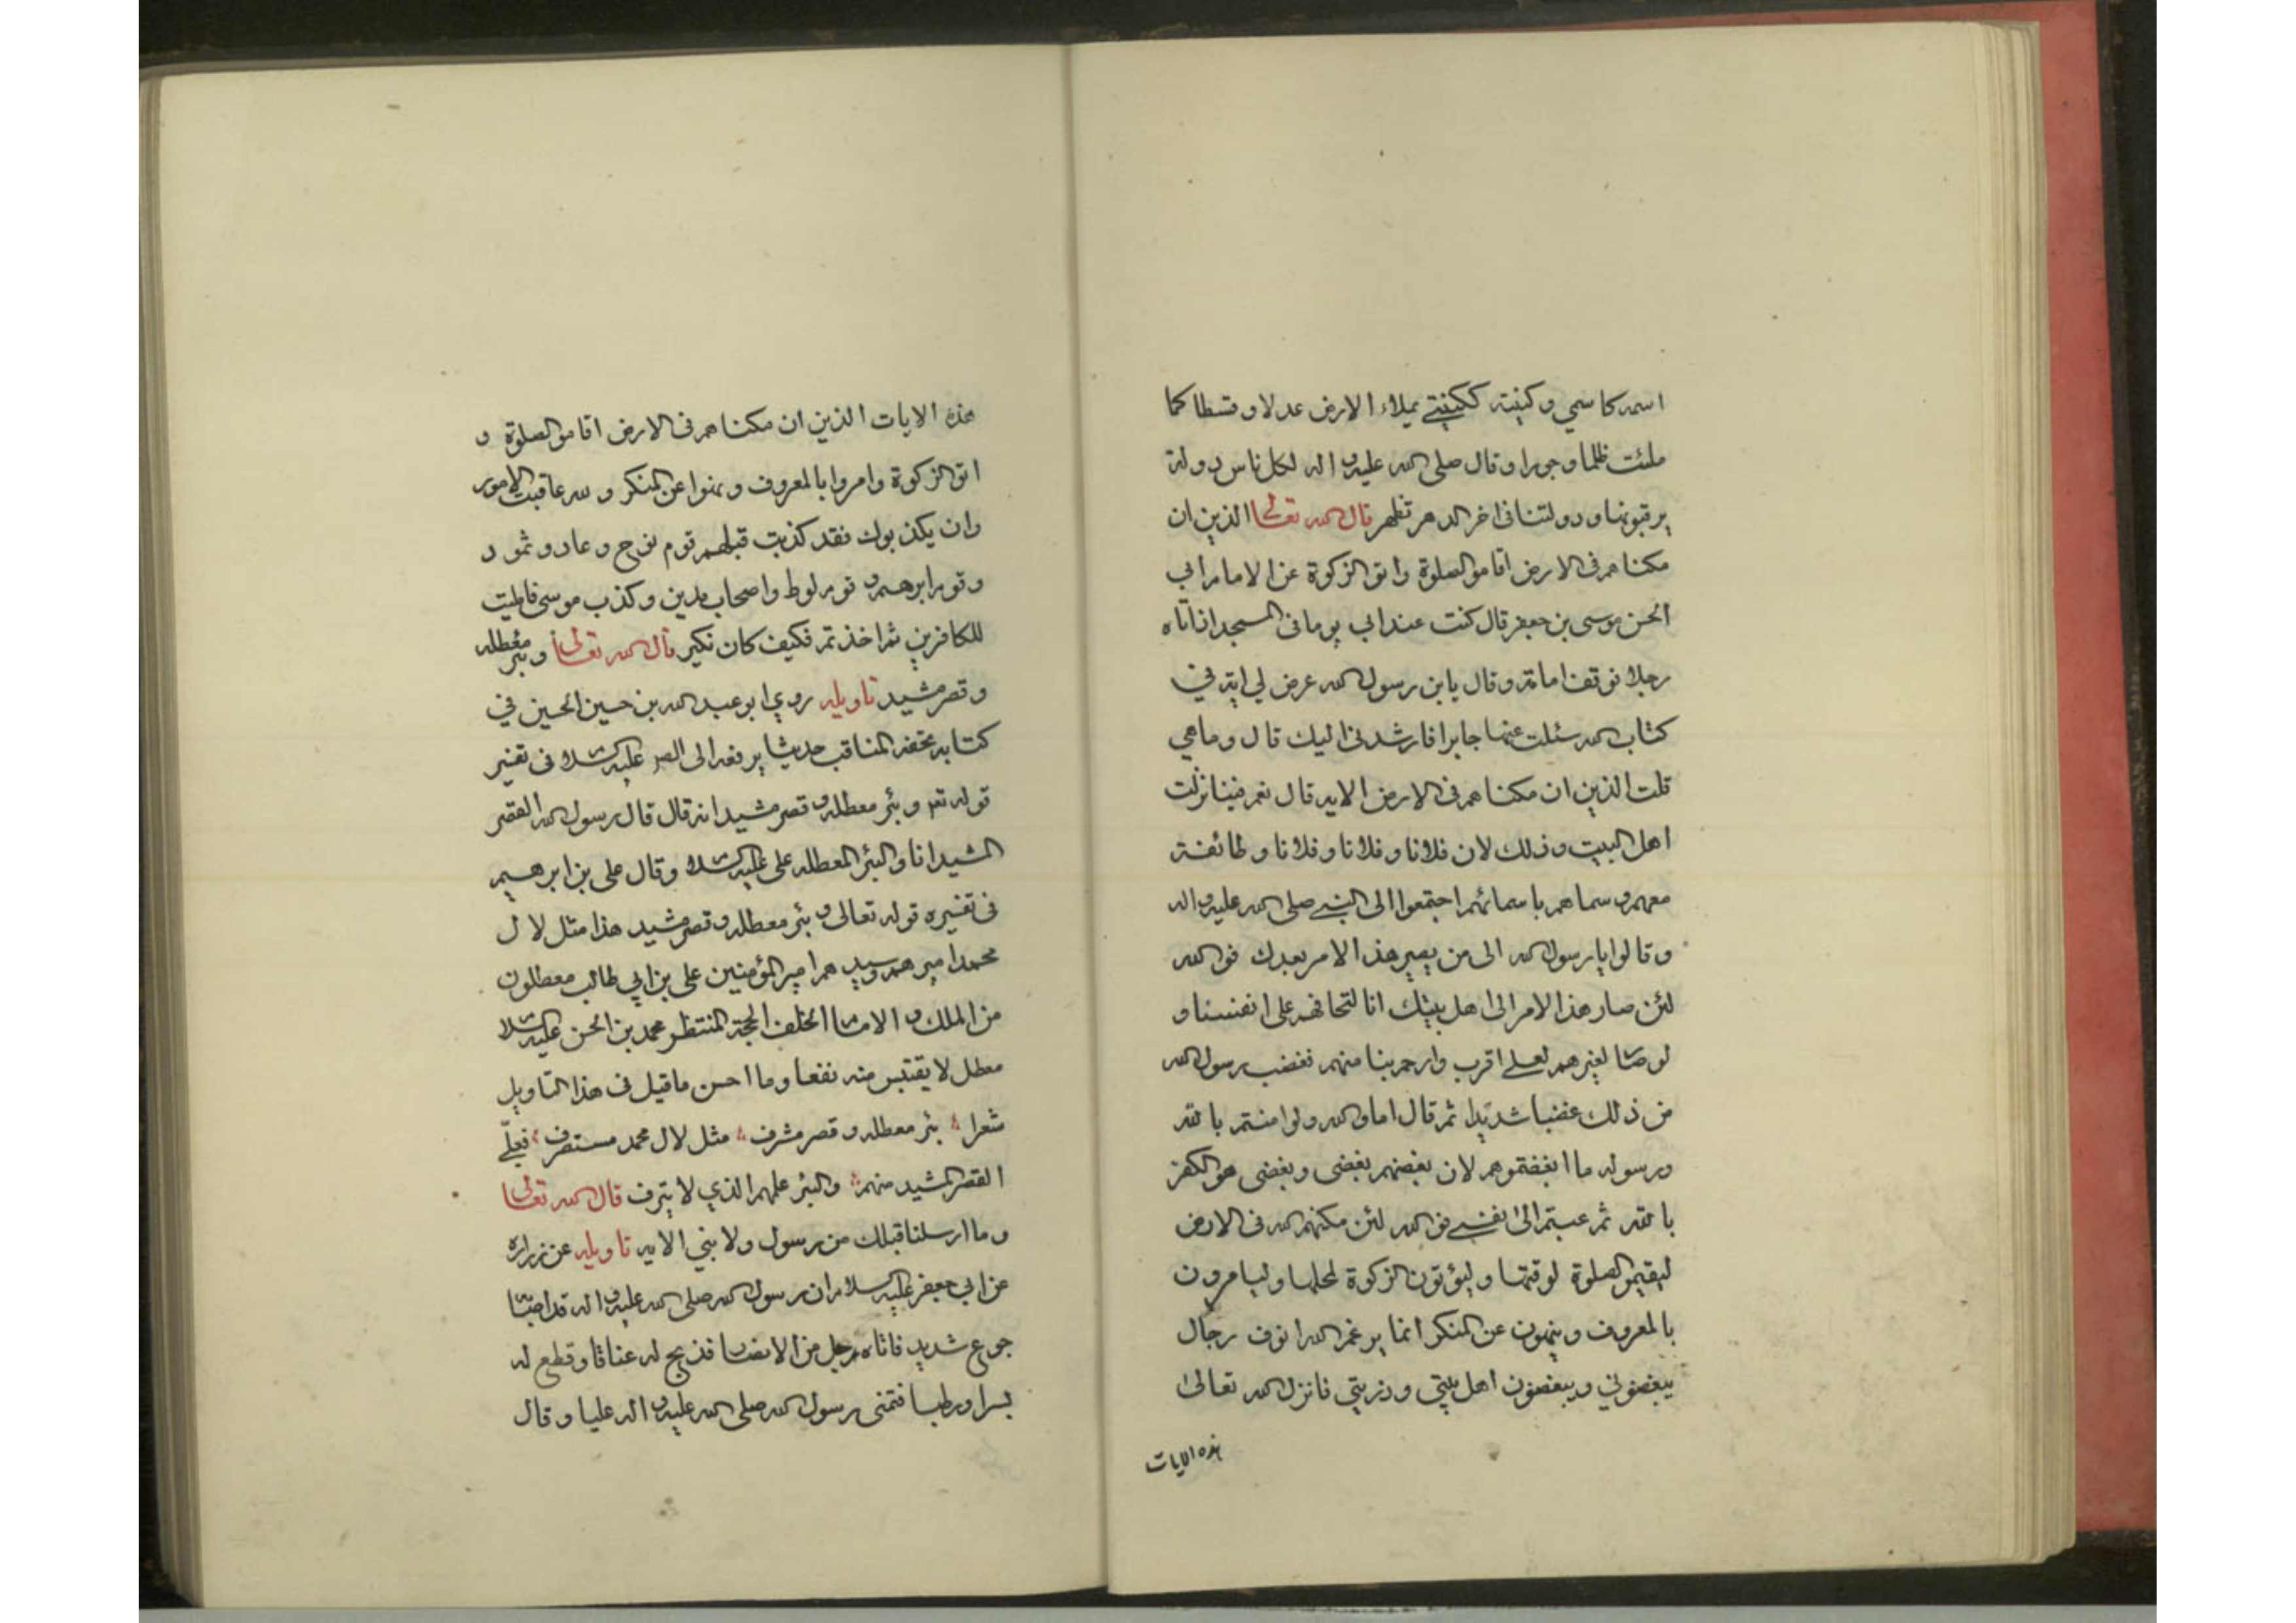 اسمه كاسمي وكنيته ككنيتي يملاء الارض عدلا وقسطا كما
ملئت ظلما وجورا وقال صلى الله عليه واله لكل ناس دولة
يرقبونها ودولتنا فى اخر الدهر تظهر قال الله تعالى الذين ان
مكناهم فى الارض اقاموا الصلوة واتوا الزكوة عن الامام ابي
الحسن موسى بن جعفر قال كنت عند ابي يوما فى المسجد اذ اتاه
رجلا فوقف امامه وقال يابن رسول الله عرض لي اية في
كتاب الله سئلت عنها جابرا فارشدنى اليك قال وما هي
قلت الذين ان مكناهم فى الارض الايه قال نعم فينا نزلت
اهل البيت وذلك لان فلانا وفلانا وفلانا وطائفة
معهم وسماهم باسمائهم اجتمعوا الى النبي صلى الله عليه واله
وقالوا يا رسول الله الى من يصير هذا الامر بعدك فوالله
لئن صار هذا الامر الى اهل بيتك انا لنخافهم على انفسنا و
لو صا لغيرهم لعلے اقرب وارحم بنا منهم فغضب رسول الله
من ذلك غضبا شديدا ثم قال اما والله ولو امنتم بالله
ورسوله ما ابغضتموهم لان بغضهم بغضى وبغضى هو الكفر
بالله ثم عبتم الى نفسے فوالله لئن مكنهم الله فى الارض
ليقيموا الصلوة لوقتها وليؤتون الزكوة لمحلها وليامرون
بالمعروف وينهون عن المنكر انما يرغم الله انوف رجال
يبغضوني ويبغضون اهل بيتي وذريتي فانزل الله تعالى
هذه الايات
هذه الايات الذين ان مكناهم فى الارض اقاموا الصلوة و
اتوا الزكوة وامروا بالمعروف ونهوا عن المنكر ولله عاقبت الامور
وان يكذبوك فقد كذبت قبلهم قوم نوح وعاد وثمود
وقوم ابرهيم وقوم لوط واصحاب مدين وكذب موسى فامليت
للكافرين ثم اخذتم فكيف كان نكير قال الله تعالى وبئر معطله
وقصر مشيد تاويله روي ابو عبد الله بن حسين الحسين في
كتابه نخب المناقب حديثا يرفعه الى الص عليه السلا فى تفسير
قوله تع وبئر معطله وقصر مشيد انه قال قال رسول الله القصر
المشيد انا والبئر المعطله على عليه السلا وقال على بن ابرهيم
فى تفسيره قوله تعالى وبئر معطله وقصر مشيد هذا مثل لال
محمد اميرهم وسيدهم امير المؤمنين على بن ابي طالب معطلون
من الملك والاما الخلف الحجة المنتظر محمد بن الحسن عليه السلا
معطل لا يقتبس منه نفعا وما احسن ما قيل فى هذا التاويل
شعرا بئر معطله وقصر مشرف مثل لال محمد مستطرف فعلّے
القصر المشيد منهم والبئر علمهم الذي لا يترف قال الله تعالى
وما ارسلنا قبلك من رسول ولا نبي الايه تاويله عن زراره
عن ابي جعفر عليه السلام ان رسول الله صلى الله عليه واله قد اصا
جوع شديد فاتاه رجل من الانصا فذبح له عناقا وقطع له
بسرا ورطبا فتمنى رسول الله صلى الله عليه واله عليا وقال